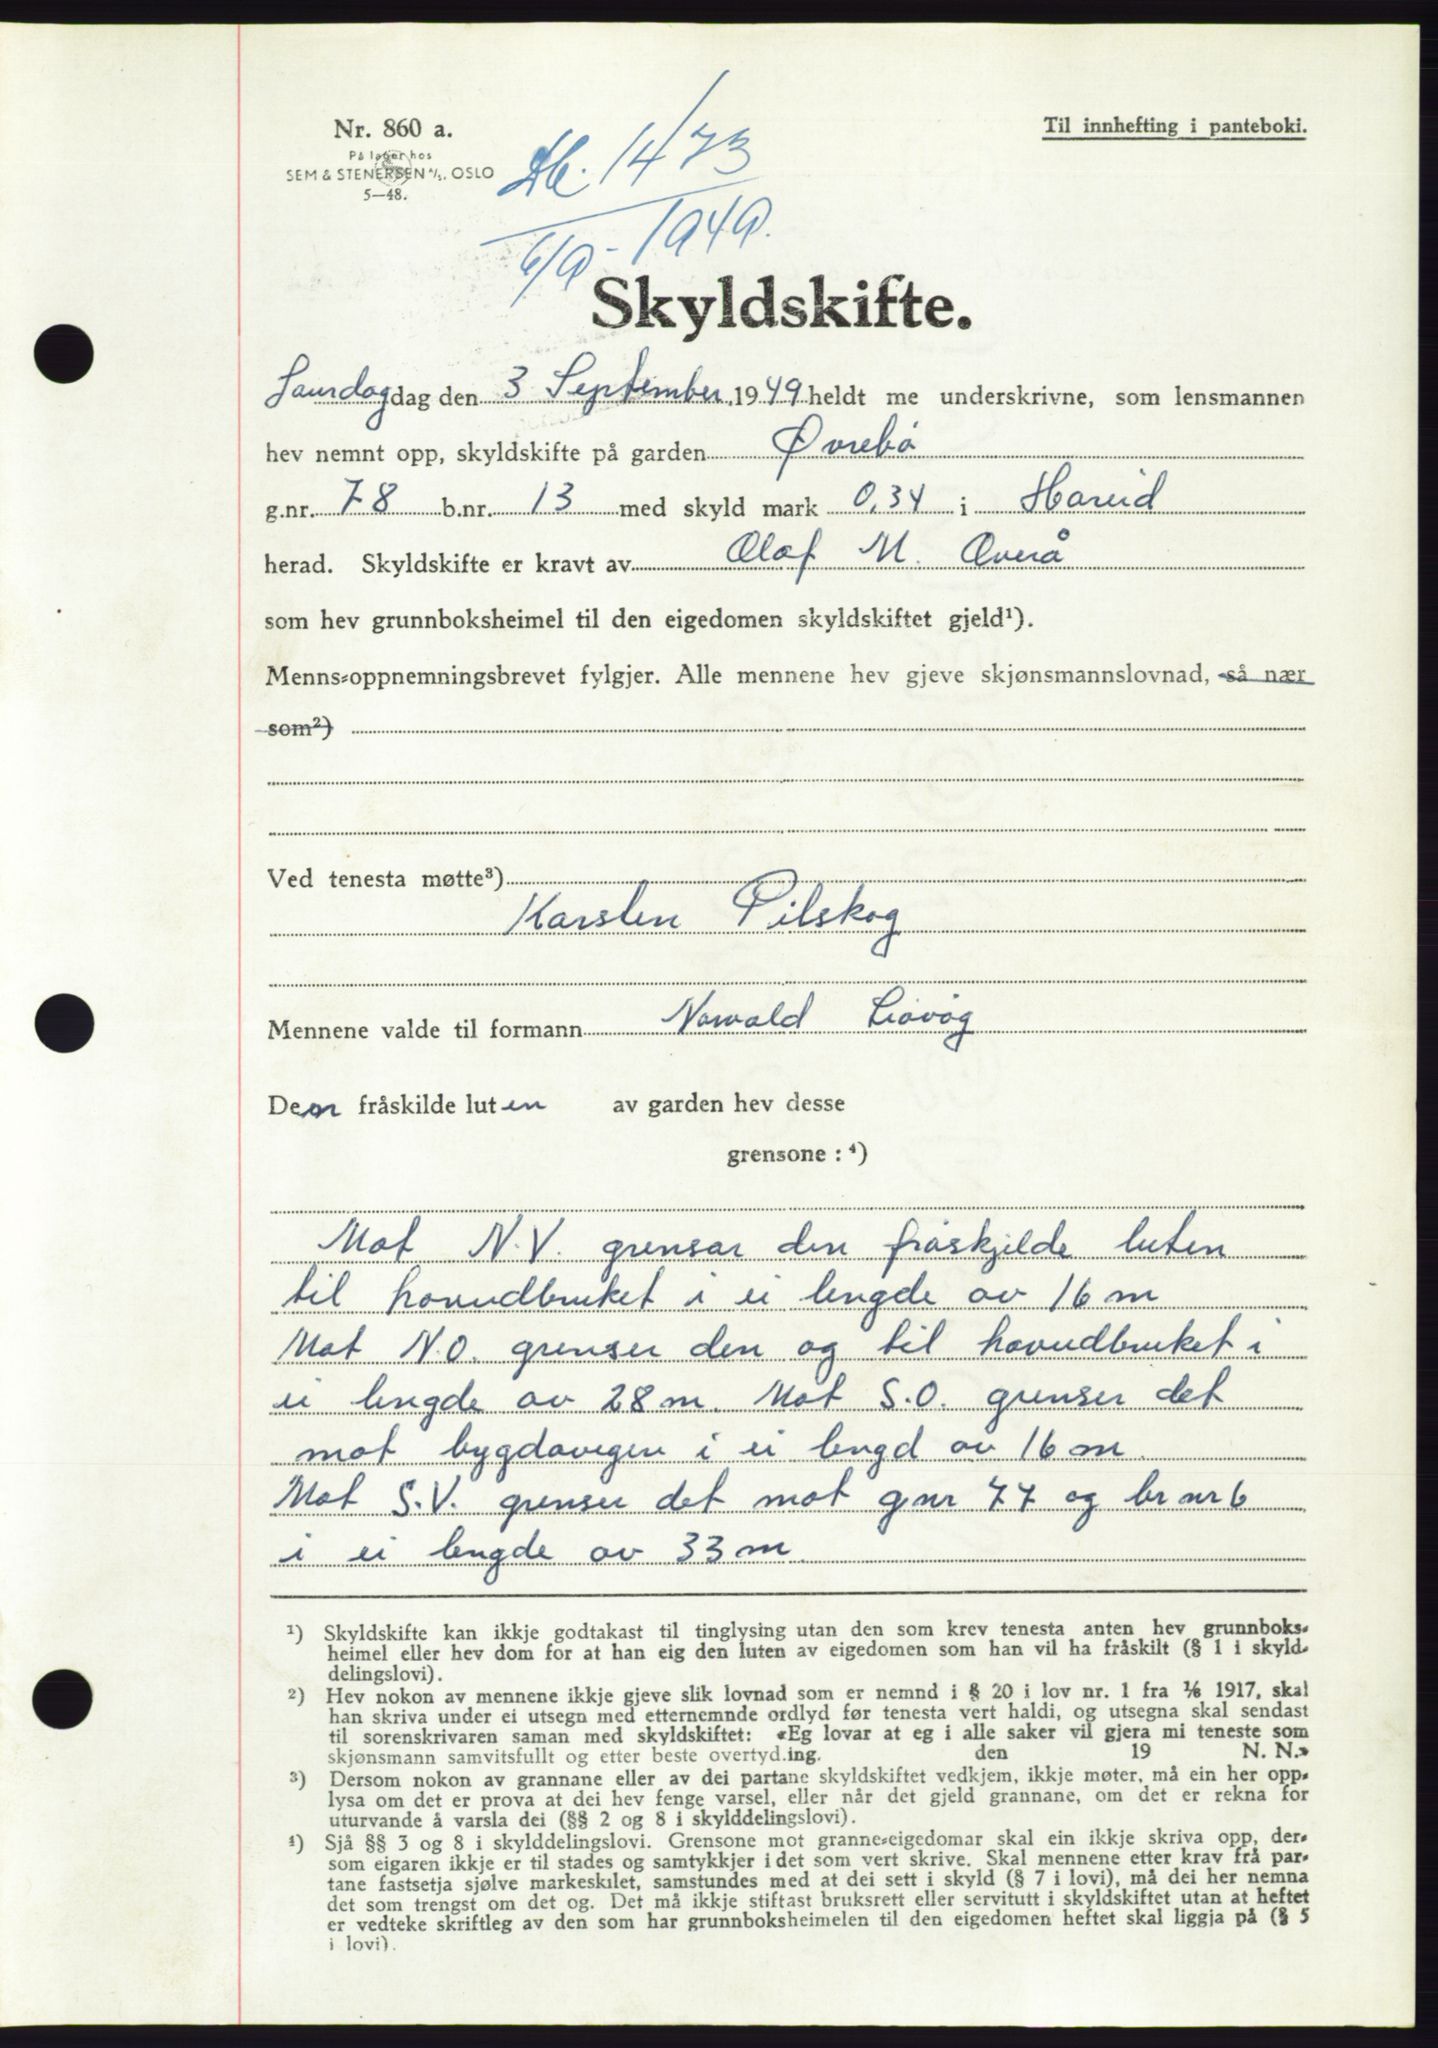 Nr. 860 a.
På lager hos
SEM & STENERSEN A/S, OSLO
5—48.
Til innhefting i panteboki.
Db. 1473
6/9 - 1949.
Skyldskifte.
Laurdag dag den 3 September 1949 heldt me underskrivne, som lensmannen
hev nemnt opp, skyldskifte på garden Øvrebø
g.nr. 78 b.nr. 13 med skyld mark 0,34 i Hareid
herad. Skyldskifte er kravt av Olaf M. Overå
som hev grunnboksheimel til den eigedomen skyldskiftet gjeld¹).
Menns-oppnemningsbrevet fylgjer. Alle mennene hev gjeve skjønsmannslovnad, så nær
som²)
Ved tenesta møtte³)
Karsten Pilskog
Mennene valde til formann Norvald Liavåg
Den fråskilde luten av garden hev desse
grensone : ⁴)
Mot N.V. grensar den fråskjelde luten
til hovudbruket i ei lengde av 16 m
Mot N.O. grenser den og til hovudbruket i
ei lengde av 28 m. Mot S.O. grenser det
mot bygdavegen i ei lengd av 16 m.
Mot S.V. grenser det mot gnr 77 og br nr 6
i ei lengde av 33 m
¹) Skyldskifte kan ikkje godtakast til tinglysing utan den som krev tenesta anten hev grunnboks-
heimel eller hev dom for at han eig den luten av eigedomen som han vil ha fråskilt (§ 1 i skyld-
delingslovi).
²) Hev nokon av mennene ikkje gjeve slik lovnad som er nemnd i § 20 i lov nr. 1 fra 1/6 1917, skal
han skriva under ei utsegn med etternemnde ordlyd før tenesta vert haldi, og utsegna skal sendast
til sorenskrivaren saman med skyldskiftet: «Eg lovar at eg i alle saker vil gjera mi teneste som
skjønsmann samvitsfullt og etter beste overtyd.ing. den 19 N. N.»
³) Dersom nokon av grannane eller av dei partane skyldskiftet vedkjem, ikkje møter, må ein her opp-
lysa om det er prova at dei hev fenge varsel, eller når det gjeld grannane, om det er rekna for
uturvande å varsla dei (§§ 2 og 8 i skylddelingslovi).
⁴) Sjå §§ 3 og 8 i skylddelingslovi. Grensone mot granne-eigedomar skal ein ikkje skriva opp, der-
som eigaren ikkje er til stades og samtykkjer i det som vert skrive. Skal mennene etter krav frå par-
tane fastsetja sjølve markeskilet, samstundes med at dei sett i skyld (§ 7 i lovi), må dei her nemna
det som trengst om det og. Det må ikkje stiftast bruksrett eller servitutt i skyldskiftet utan at heftet
er vedteke skriftleg av den som har grunnboksheimelen til den eigedomen heftet skal liggja på (§ 5
i lovi).